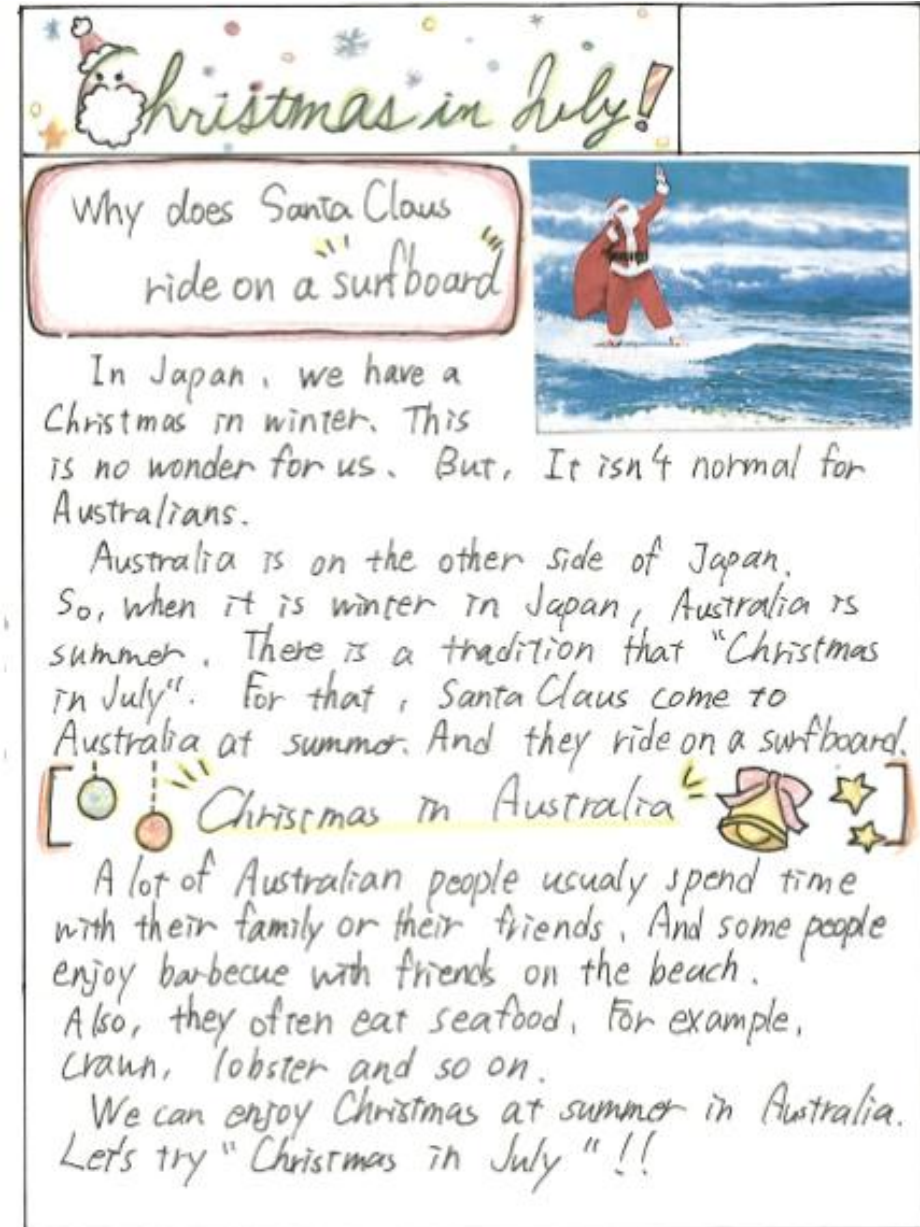 Christmas in July!
Why does Santa Claus
ride on a surfboard
In Japan, we have a
Christmas in winter. This
is no wonder for us. But, It isn't normal for
Australians.
Australia is on the other side of Japan.
So, when it is winter in Japan, Australia is
summer. There is a tradition that "Christmas
in July". For that, Santa Claus come to
Australia at summer. And they ride on a surfboard.
Christmas in Australia
A lot of Australian people usualy spend time
with their family or their friends. And some people
enjoy barbecue with friends on the beach.
Also, they often eat seafood. For example,
crawn, lobster and so on.
We can enjoy Christmas at summer in Australia.
Let's try "Christmas in July"!!